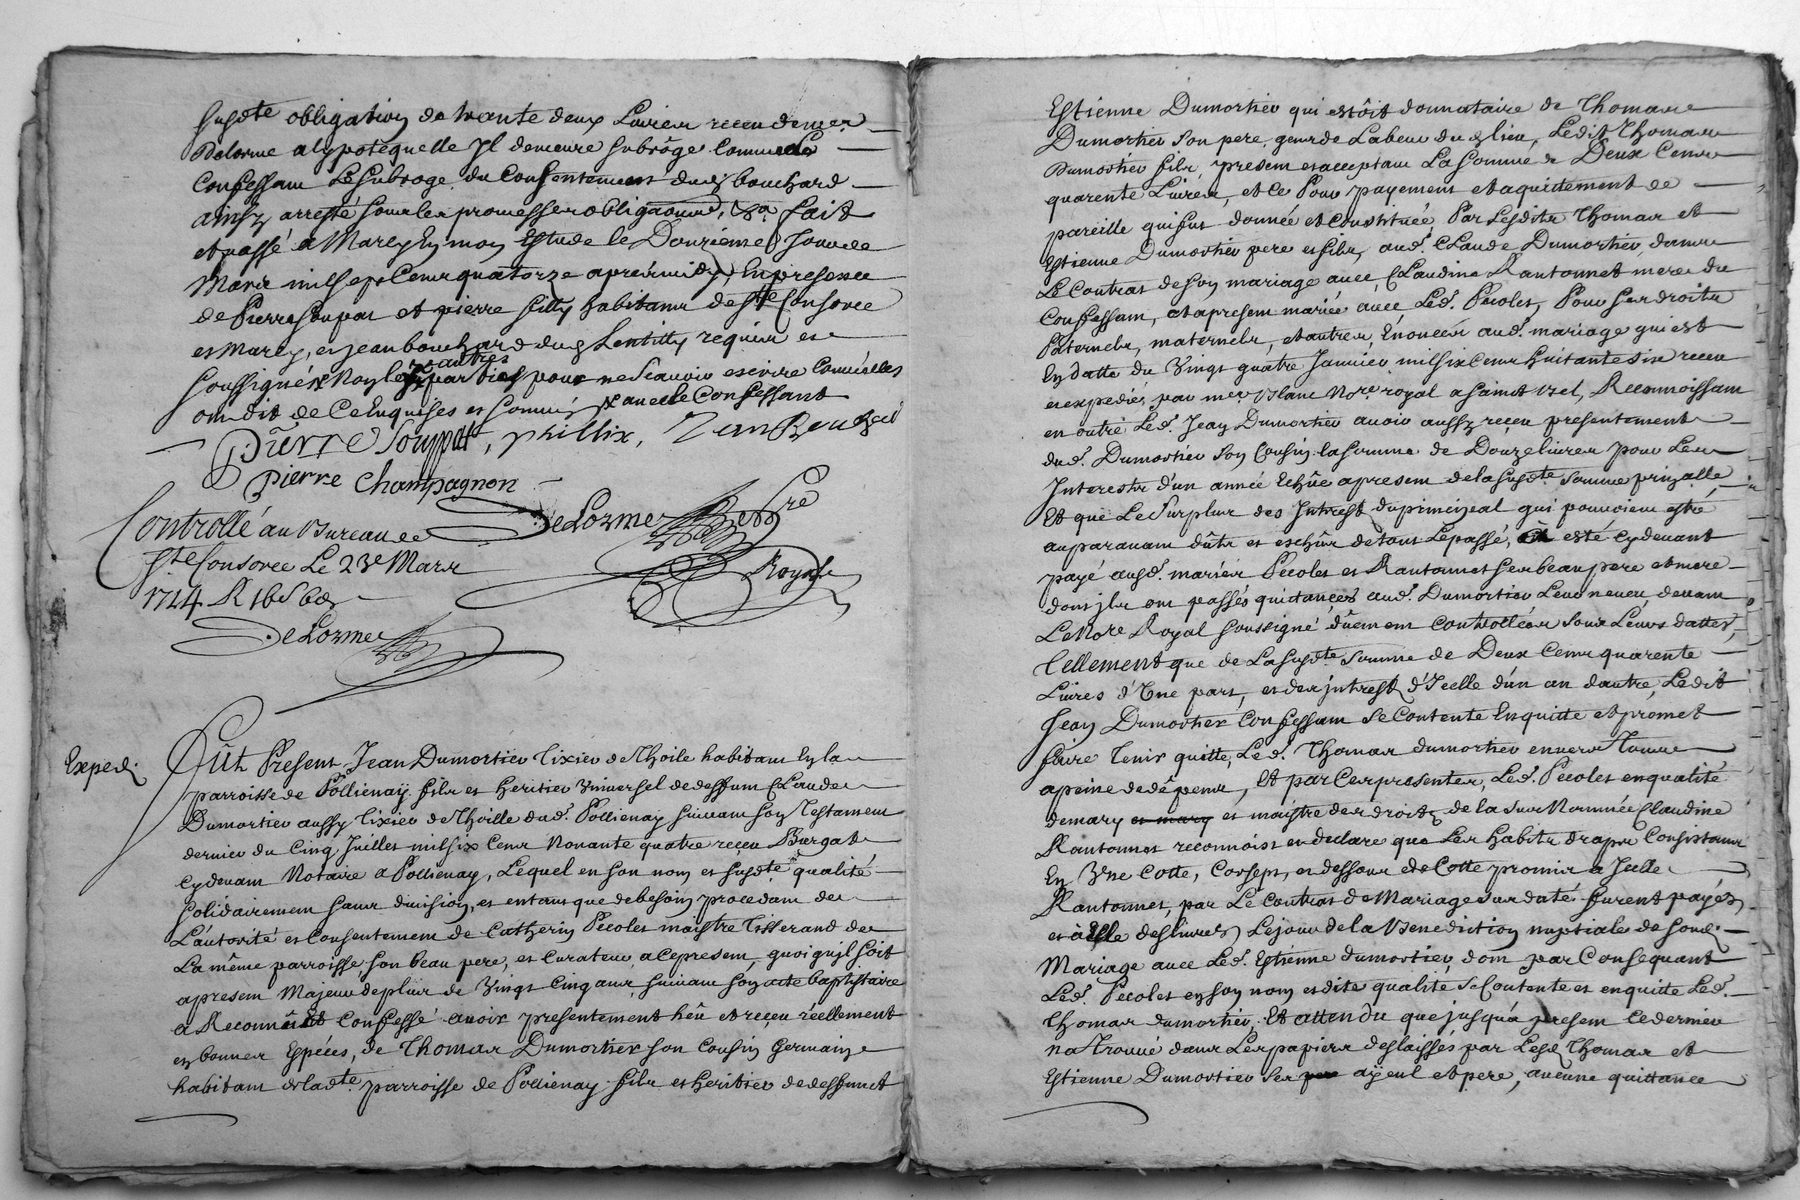 susdte obligation de trante deux Livres receu demer
Delorme a lypotequelle Jl demeure subrôgé Comme led
Confessant Le subroge du Consentement dud bouchard
ainsy arresté sous les promesses obligaõns, &a fait
et passé a Marcy En mon Estude le Douzieme Jour de
Mars mil sept Cens quatorze apres midy, En presence
de Pierre Soupat et pierre filly habitans de Ste Consorce
et Marcy, et jean bouchard dud Lentilly requis et
soussignés Non les autres parties pour ne sçavoir escrire Comme elles
ont dit de Ce Enquises et Sommés avec le Confessant
Pierre Souppat, phillix, Jean Bouchard
pierre Champagnon
DeLorme Nre
Royal
Controllé au Bureau de
Ste Consorce Le 23e Mars
1714 R 16s 6d
DeLorme
Exped.
Fût Present Jean Dumortier Tixier de Thoile habitant En la
parroisse de Pollienay fils et heritier Vniversel de deffunt Claude
Dumortier aussy Tixier de Thoille dud. Pollienay suivant son Testament
dernier du Cinq Juillet mil six Cens Nonante quatre receu Burgat
Cydevant Notaire a Pollienay, Lequel en son nom et susdte qualité
solidairement sans division, et entant que debesoin procedant de
L'autorité et Consentement de Catherin Pecolet maistre Tisserand de
La même parroisse, son beau pere, et Curateur, a Ce present, quoi quil soit
apresent Majeur de plus de Vingt Cinq ans, suivant son acte baptistaire
a Reconnû et Confessé avoir presentement hêu et receu réellement
en bonnes Espéces, de Thomas Dumortier son Cousin Germain
habitant de ladte parroisse de Pollienay fils et heritier de deffunct
Estienne Dumortier qui estôit donnataire de Thomas
Dumortier son pere, gens de Labeur dud lieu, Ledit Thomas
Dumortier fils, present et acceptant La Somme de Deux Cens
quarente Livres, et Ce Pour payement et aquittement de
pareille qui fut donnée et Constituée Par Lesdits Thomas et
Estienne Dumortier pere et fils, aud. Claude Dumortier, dans
Le Contrat de son mariage avec Claudine Rantonnet mere du
Confessant, et apresent mariée avec Led. Pecolet, Pour ses droits
Paternels, maternels, et autres, Enoncés aud. mariage qui est
En datte du Vingt quatre Janvier mil six Cens huitante six receu
et expedié par me Blanc Nore royal a Sainct Bel, Reconnoissant
en outre Led. Jean Dumortier avoir aussy receu presentement
dud. Dumortier son Cousin la somme de Douze livres pour Les
Interests d'un année Echûe apresent de la susdte somme prinẽalle
Et que Le Surplus des Intrest du principal qui pouvoient estre
auparavant dûts et eschûs de tout Le passé, ont esté Cydevant
payé ausd. mariés Pecolet et Rantonnet ses beau pere et mere
dont jls ont passés quittances aud. Dumortier Leur neveu, devant
Le Nore Royal soussigné dûement Controllées sous Leurs dattes,
Tellement que de La susdte somme de Deux Cens quarente
Livres d'Vne part, et des jntrest d'Icelle d'un an dautre, Ledit
Jean Dumortier Confessant se Contente En quitte et promet
faire Tenir quitte, Led. Thomas dumortier envers Tous
a peine de dêpens, Et par Ces presentes, Led. Pecolet en qualité
de mary et mary et maistre des droits de la sus Nommée Claudine
Rantonnet reconnoist et declare que Les habits draps Consistans
En Vne Cotte, Corsept, et dessous de Cotte promis a Jcelle
Rantonnet, par Le Contrat de Mariage sus daté furent payés
et à Elle deslivrés Le jour de la Benediction nuptiale de sond.
Mariage avec Led. Estienne dumortier, dont par Consequant
Led. Pecolet en son nom et dite qualité se Contante et en quitte Led.
Thomas dumortier, Et attendu que jusquà present Ce dernier
na trouvé dans Les papiers deslaissés par Lesd Thomas et
Estienne Dumortier ses ayeul et pere, aucune quittance